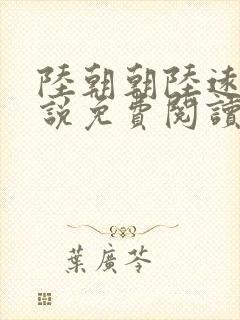 陸朝朝陸遠
說免費閱讀
葉廣芩